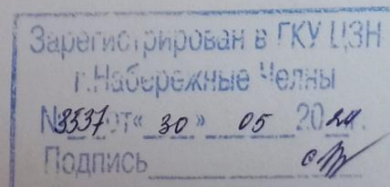 Зарегистрирован в ГКУ ЦЗН
г.Набережные Челны
№3537 от «30» 05 2024 г.
Подпись